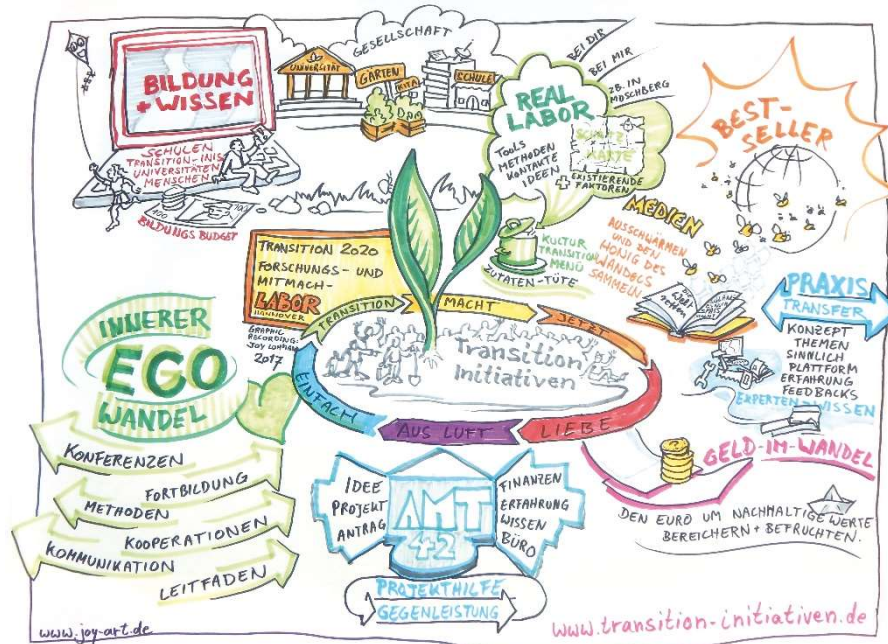 BILDUNG
+ WISSEN
SCHULEN
TRANSITION-INIS
UNIVERSITÄTEN
MENSCHEN
100
BILDUNGSBUDGET
GESELLSCHAFT
UNIVERSITÄT
GARTEN
KITA
SCHULE
REAL
LABOR
TOOLS
METHODEN
KONTAKTE
IDEEN
SCHATZ
KARTE
+ EXISTIERENDE
FAKTOREN
BEI DIR
BEI MIR
Z.B. IN
MOSCHBERG
KULTUR
TRANSITION
MENÜ
ZUTATEN-TÜTE
BEST-
SELLER
MEDIEN
AUSSCHWÄRMEN
UND DEN
HONIG DES
WANDELS
SAMMELN
Welt
retten
PRAXIS
TRANSFER
KONZEPT
THEMEN
SINNLICH
PLATTFORM
ERFAHRUNG
FEEDBACKS
EXPERTEN-WISSEN
TRANSITION 2020
FORSCHUNGS- UND
MITMACH-
LABOR
HANNOVER
GRAPHIC
RECORDING:
JOY LOHMANN
2017
TRANSITION
MACHT
JETZT
LIEBE
AUS LUFT
EINFACH
Transition
Initiativen
INNERER
EGO
WANDEL
KONFERENZEN
FORTBILDUNG
METHODEN
KOOPERATIONEN
KOMMUNIKATION
LEITFADEN
IDEE
PROJEKT
ANTRAG
AMT
42
FINANZEN
ERFAHRUNG
WISSEN
BÜRO
PROJEKTHILFE
GEGENLEISTUNG
GELD-IM-WANDEL
DEN EURO UM NACHHALTIGE WERTE
BEREICHERN + BEFRUCHTEN.
www.joy-art.de
www.transition-initiativen.de